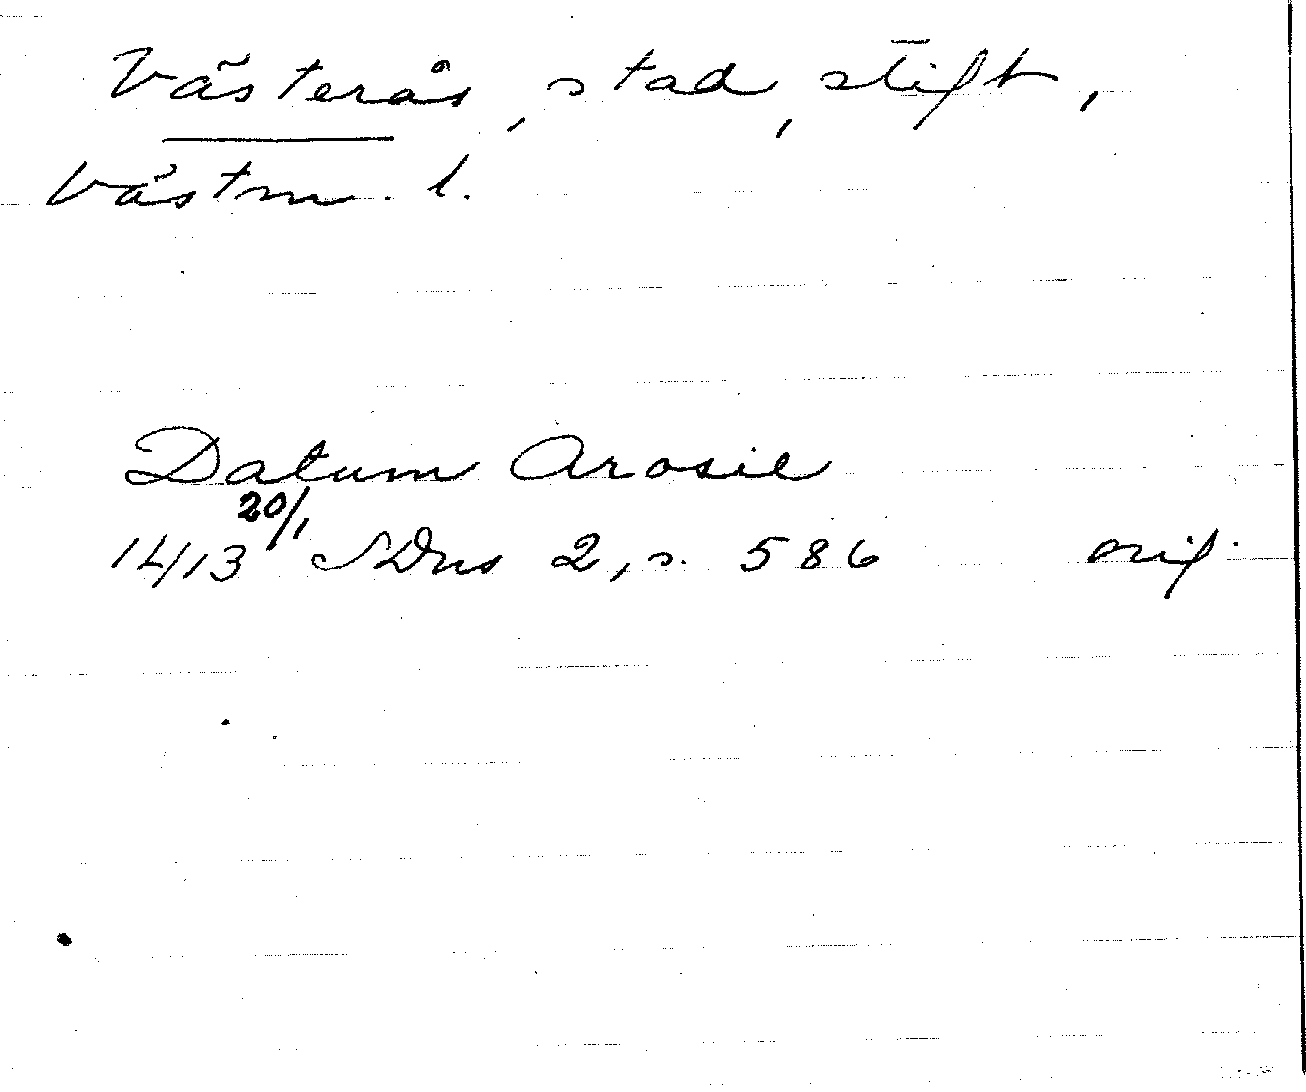 Västerås, stad, stift,
Västm. l.
Datum Arosie
1413 20/1 SDns 2, s. 586 orig.